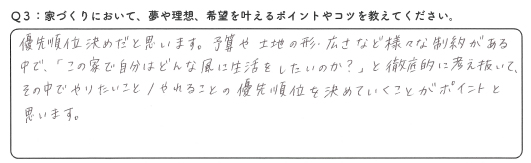 Q3：家づくりにおいて、夢や理想、希望を叶えるポイントやコツを教えてください。
優先順位決めだと思います。予算や土地の形・広さなど様々な制約がある
中で、「この家で自分はどんな風に生活をしたいのか？」と徹底的に考え抜いて、
その中でやりたいこと/やれることの優先順位を決めていくことがポイントと
思います。